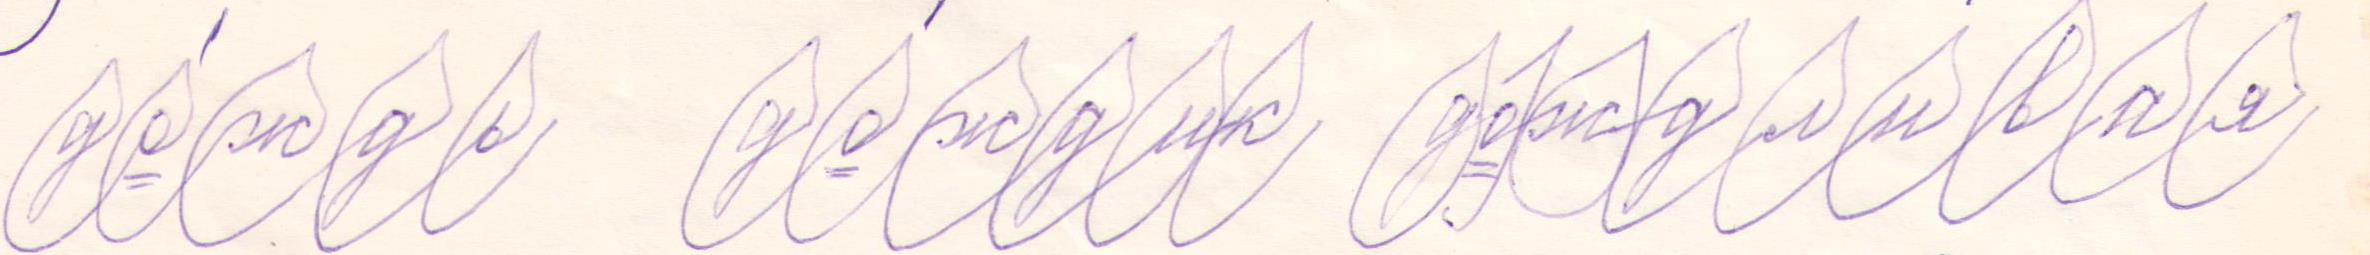 до́ждь до́ждик дождливая